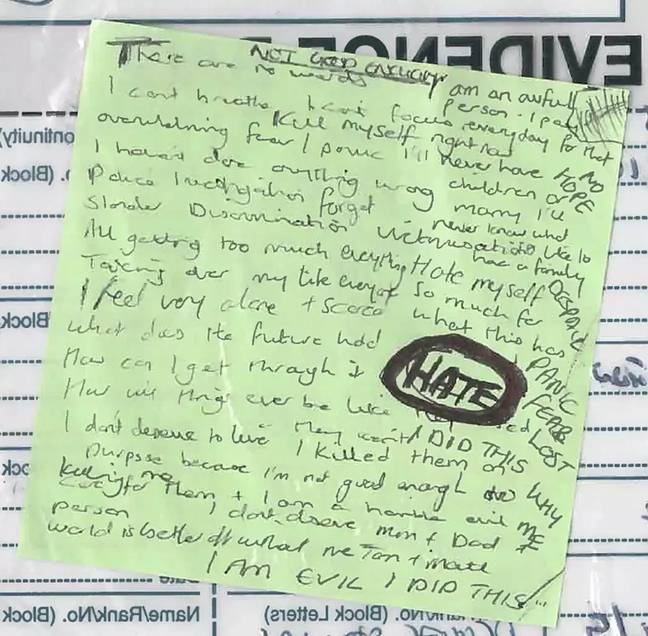 EVIDENCE
There are no words
NOT GOOD ENOUGH
I am an awful person - I pay
I cant breathe I cant focus everyday for that
overwhelming fear / panic
Kill myself right now
I'll never have
NO HOPE
I haven't done anything wrong
children or marry I'll
Police Investigation forget
never know what its like to have a family
Slander Discrimination Victimisation
All getting too much everything
Hate myself
DESPAIR
Taking over my life everyone
so much for what this has
I feel very alone + scared
PANIC
What does the future hold
HATE
FEAR
How can I get through it
LOST
How will things ever be like they
I DID THIS
I don't deserve to live
I killed them on purpose because I'm not good enough to
WHY ME
care for them + I am a horrible evil person
Killing me
I don't deserve mum + Dad
world is better off without me
I AM EVIL I DID THIS
Name/Rank/No. (Block Letters)